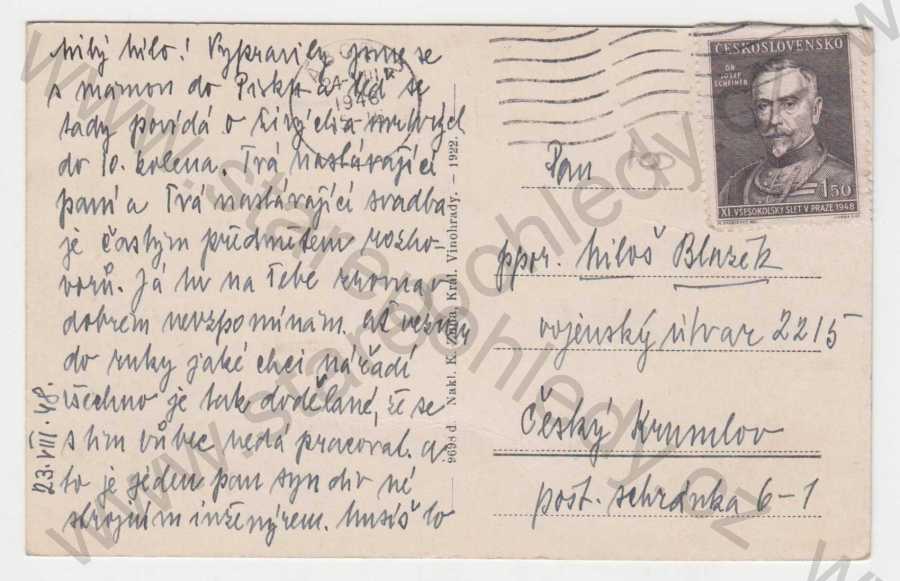 milý Milo! Vypravily jsme se
s mamou do Písku a teď se
tady povídá o živých i a mrtvých
do 10. kolena. Tvá nastávající
paní a Tvá nastávající svadba
je častým předmětem rozho-
vorů. Já tu na Tebe
dobrém nevzpomínám. ať vezmu
do ruky jaké chci nářadí
všechno je tak dodělané, že se
s tím vůbec nedá pracovat. a
to je jeden pan syn div ne
strojním inženýrem. Musíš to
23.VIII.48.
9698 d. Nakl. K. Král. Vinohrady. – 1922.
1948
ČESKOSLOVENSKO
DR
JOSEF
SCHEINER
1.50
XI. VŠESOKOLSKÝ SLET V PRAZE 1948
Pan
ppor. Miloš Blažek
vojenský útvar 2215
Český Krumlov
post. schránka 6-1
www.starepohledy.cz
www.starepohledy.cz